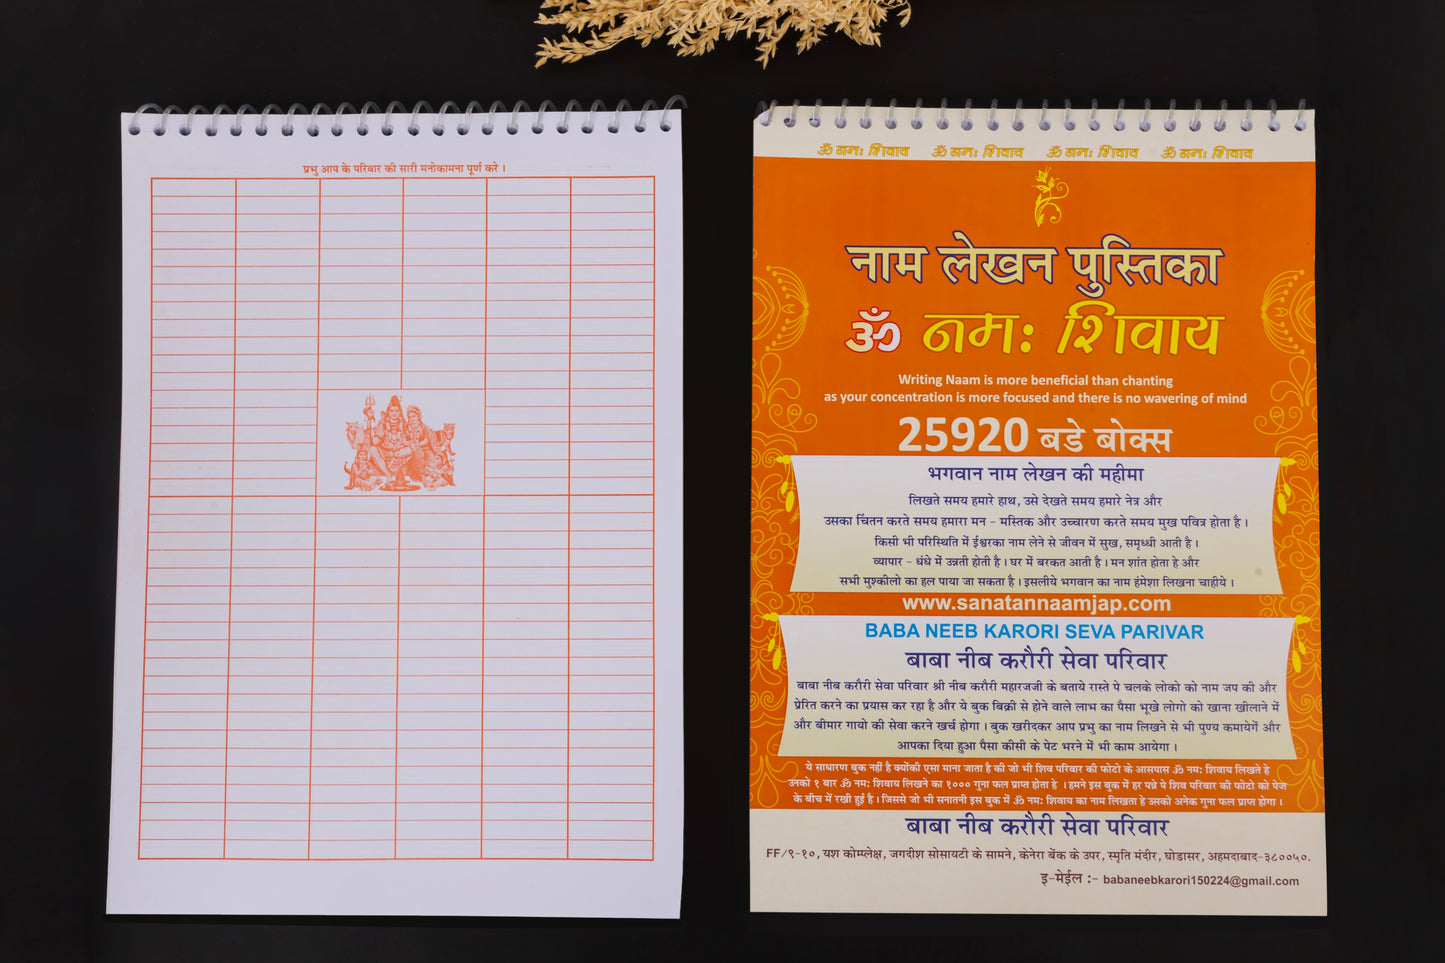 प्रभु आप के परिवार की सारी मनोकामना पूर्ण करे ।
ॐ नमः शिवाय ॐ नमः शिवाय ॐ नमः शिवाय ॐ नमः शिवाय
नाम लेखन पुस्तिका
ॐ नमः शिवाय
Writing Naam is more beneficial than chanting
as your concentration is more focused and there is no wavering of mind
25920 बडे बोक्स
भगवान नाम लेखन की महीमा
लिखते समय हमारे हाथ, उसे देखते समय हमारे नेत्र और
उसका चिंतन करते समय हमारा मन - मस्तिक और उच्चारण करते समय मुख पवित्र होता है ।
किसी भी परिस्थिति में ईश्वरका नाम लेने से जीवन में सुख, समृध्धी आती है ।
व्यापार - धंधे में उन्नती होती है । घर में बरकत आती है । मन शांत होता हे और
सभी मुश्कीलो का हल पाया जा सकता है । इसलीये भगवान का नाम हंमेशा लिखना चाहीये ।
www.sanatannaamjap.com
BABA NEEB KARORI SEVA PARIVAR
बाबा नीब करौरी सेवा परिवार
बाबा नीब करौरी सेवा परिवार श्री नीब करौरी महारजजी के बताये रास्ते पे चलके लोको को नाम जप की और
प्रेरित करने का प्रयास कर रहा है और ये बुक बिक्री से होने वाले लाभ का पैसा भूखे लोगो को खाना खीलाने में
और बीमार गायो की सेवा करने खर्च होगा । बुक खरीदकर आप प्रभु का नाम लिखने से भी पुण्य कमायेगें और
आपका दिया हुआ पैसा कीसी के पेट भरने में भी काम आयेगा ।
ये साधारण बुक नहीं है क्योंकी एसा माना जाता है की जो भी शिव परिवार की फोटो के आसपास ॐ नमः शिवाय लिखते हे
उनको १ बार ॐ नमः शिवाय लिखने का १००० गुना फल प्राप्त होता हे । हमने इस बुक में हर पन्ने पे शिव परिवार की फोटो को पेज
के बीच में रखी हुई है । जिससे जो भी सनातनी इस बुक में ॐ नमः शिवाय का नाम लिखता हे उसको अनेक गुना फल प्राप्त होगा ।
बाबा नीब करौरी सेवा परिवार
FF/९-१०, यश कोम्प्लेक्ष, जगदीश सोसायटी के सामने, केनेरा बेंक के उपर, स्मृति मंदीर, घोडासर, अहमदाबाद-३८००५०.
इ-मेईल :- babaneebkarori150224@gmail.com